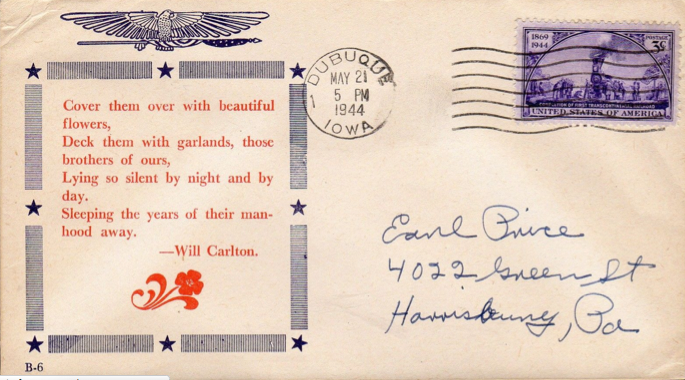 Cover them over with beautiful
flowers,
Deck them with garlands, those
brothers of ours,
Lying so silent by night and by
day.
Sleeping the years of their man-
hood away.
—Will Carlton.
B-6
DUBUQUE
MAY 21
5 PM
1944
IOWA
1
1869
1944
POSTAGE
3¢
COMPLETION OF FIRST TRANSCONTINENTAL RAILROAD
UNITED STATES OF AMERICA
Earl Price
4022 Green St
Harrisburg, Pa